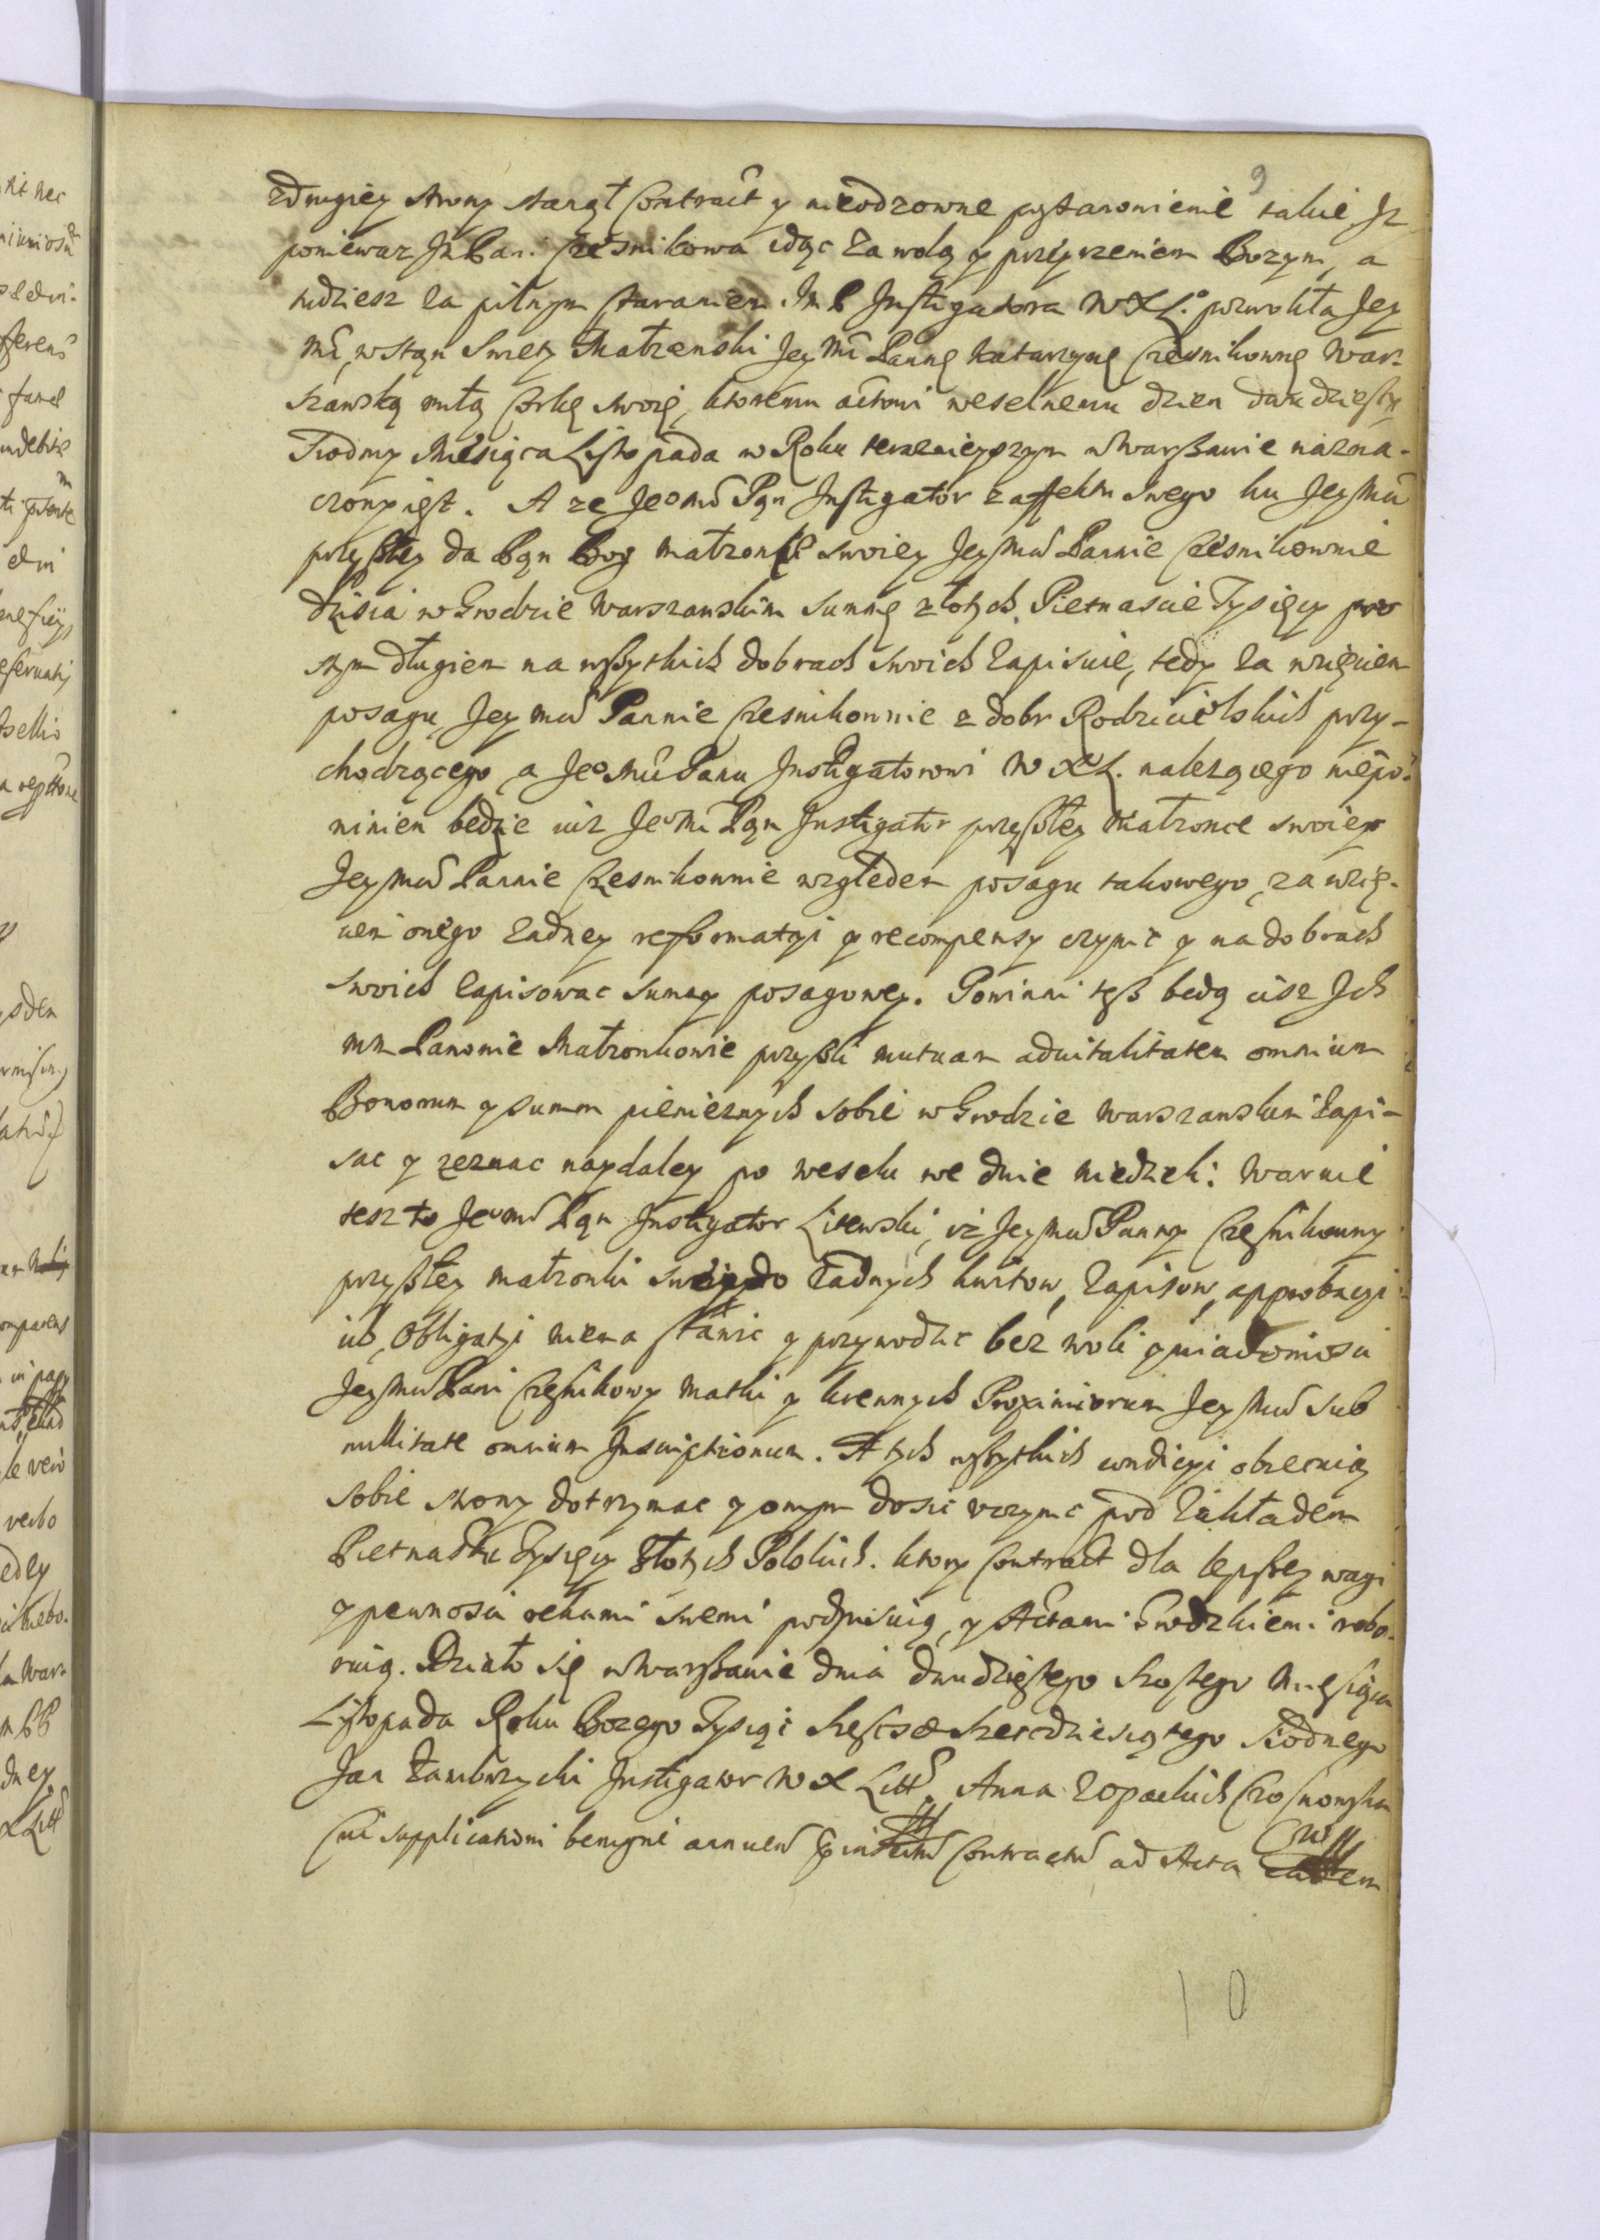 9
zdrugiey strony stanął Contract y nieodzowne postanowienie takie Jż
ponieważ Jm Pani Czesnikowa idąc za wolą y przeyrzeniem Bozym, a
tudziesz za pilnym staraniem Jm P Instigatora W X L. pozwoliła Jey
Mć, w stan Swięty Małzenski Jey Mć Pannę Katarzynę Czesnikownę War-
szawską miłą Corkę swoię, ktoremu actowi weselnemu dzien dwudziesty
Siodmy Miesiąca Listopada w Roku teraznieyszym w Warszawie nazna-
czony iest. A ze Jeomć Pan Instigator z affektu swego ku Jey Mci
przyszłey da Pan Bog małzonce swoiey Jey Mci Pannie Czesnikownie
dzisia w Grodzie Warszawskim summę złotych Pietnascie Tysięcy pro
stym długiem na wszytkich dobrach swoich zapisuie, tedy za wzięciem
posagu Jey mci Pannie Czesnikownie z dobr Rodzicielskich przy-
chodzącego, a Jeo Mci Panu Instigatorowi W X L. nalezącego niepo-
winien bedzie iuz Jeo Mć Pan Instigator przyszłey Małzonce swoiey
Jey Mci Pannie Czesnikownie względem posagu takowego, za wzię-
ciem onego zadney reformatyi y recompensy czynic y na dobrach
swoich zapisowac summy posagowey. Powinni tesz będą iusz Jch
mm Panowie Małzonkowie przyszli mutuam advitalitatem omnium
Bonorum y summ pienieznych sobie w Grodzie Warszawskim zapi-
sac y zeznac naydaley po weselu we dwie niedzieli: Waruie
tesz to Jeomć Pan Instigator Litewski, iż Jey Mci Panny Czesnikowny
przyszłey małzonki swoiey do zadnych kwitow, zapisow, approbacyi
ib, Obligatyi niema stawic y przywodzic bez woli y wiadomosci
Jey Mci Pani Czesnikowy matki y krewnych Proximiorum Jey Mci sub
nullitate omnium Inscriptionum. A tych wszytkich condicyi obiecuią
sobie strony dotrzymac y onym dosic uczynic pod zakładem
Pietnastu Tysięcy Złotych Polskich. ktory Contract dla lepszey wagi
y pewnosci rekami swemi podpisuią, y Actami Grodzkiemi robo-
ruią. Działo się w Warszawie dnia dwudziestego szostego Miesiąca
Listopada Roku Bozego Tysiąc szescset szescdziesiątego siodnego
Jan Zambrzycki Instigator W X Litt. Anna Zopackich
Cui supplicationi benigne annuens Contractum ad Acta
10